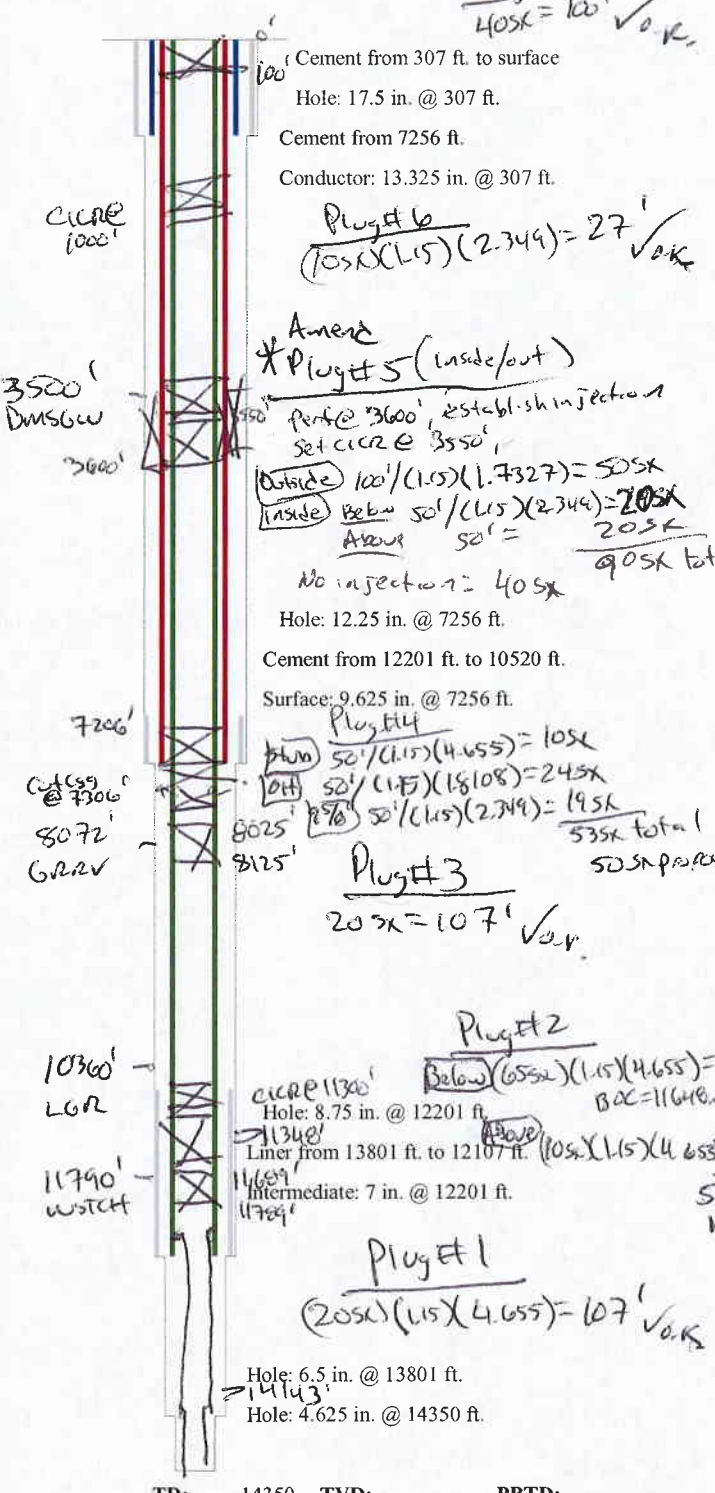 40sx = 100' ✓o.k.
0'
100'
Cement from 307 ft. to surface
Hole: 17.5 in. @ 307 ft.
Cement from 7256 ft.
Conductor: 13.325 in. @ 307 ft.
CICR@
1000'
Plug#6
(10sx)(1.15)(2.349)= 27' ✓o.k.
Amend
*Plug#5 (inside/out)
3500'
DMSGW
3600'
Perf@ 3600', establish injection
set CICR @ 3550',
Outside 100'/(1.15)(1.7327)= 50sx
Inside Below 50'/(1.15)(2.349)=20sx
Above 50' = 20sx
90sx tot
No injection = 40sx
Hole: 12.25 in. @ 7256 ft.
Cement from 12201 ft. to 10520 ft.
Surface: 9.625 in. @ 7256 ft.
7206'
Plug#4
Stub 50'/(1.15)(4.655)= 10sx
OH 50'/(1.15)(1.8108)=24sx
9 5/8 50'/(1.15)(2.349)= 19sx
53sx total
Cut Csg
@ 7306'
8072'
GRRV
8025'
8125'
Plug#3
20sx=107' ✓o.k.
Plug#2
10360'
LGR
Below (65sx)(1.15)(4.655)=
CICR@11300'
Hole: 8.75 in. @ 12201 ft.
11348'
Liner from 13801 ft. to 12107 ft.
Above (10sx)(1.15)(4.655
11790'
WSTCH
11689'
11789'
Intermediate: 7 in. @ 12201 ft.
Plug#1
(20sx)(1.15)(4.655)= 107' ✓o.k.
Hole: 6.5 in. @ 13801 ft.
14143'
Hole: 4.625 in. @ 14350 ft.
TD: 14350 TVD: PBTD: